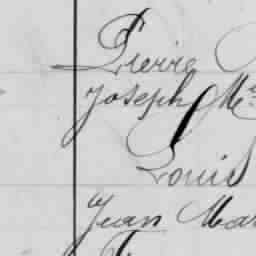 Pierre
Joseph Mc
Louis
Jean Mar